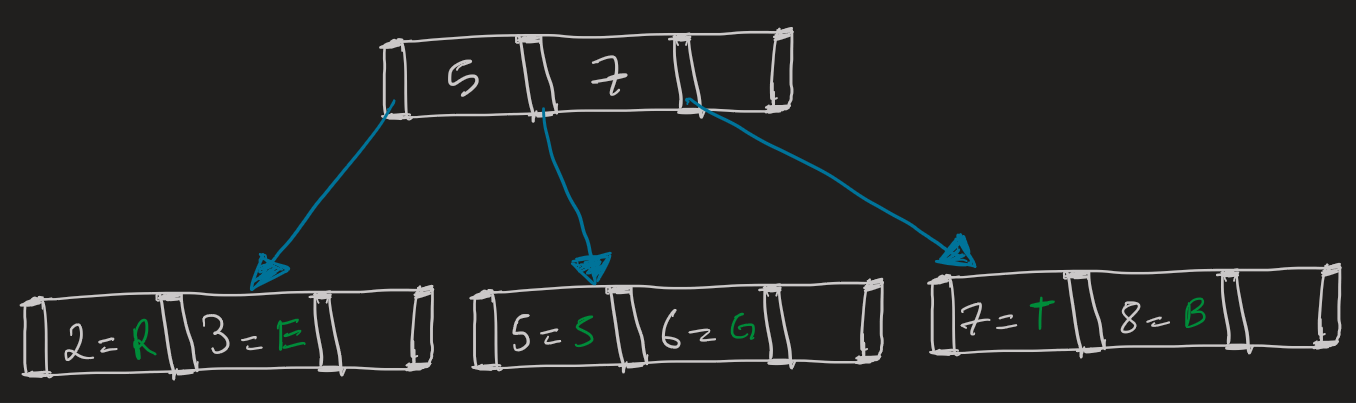 5 7
2=R 3=E
5=S 6=G
7=T 8=B